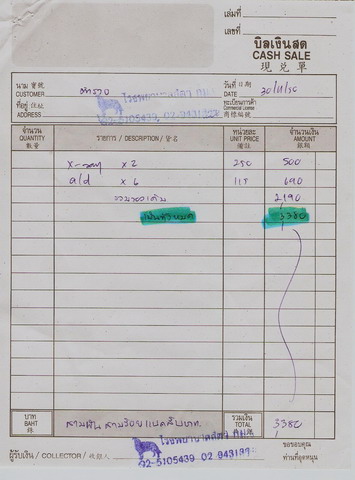 เล่มที่
เลขที่
บิลเงินสด
CASH SALE
現兌單
นาม 寶號
CUSTOMER
ที่อยู่ 住址
ADDRESS
โรงพยาบาลสัตว์
02-5105439, 02-943
วันที่ 日期
DATE 30/11/50
ทะเบียนการค้า
Commercial License
商標編號
จำนวน QUANTITY 數量
รายการ / DESCRIPTION / 貨名
หน่วยละ UNIT PRICE 價註
จำนวนเงิน AMOUNT 銀碼
X-ray x 2 250 500
ald x 6 115 690
2190
3380
บาท
BAHT
銖
สามพัน สามร้อย แปดสิบบาท
รวมเงิน
TOTAL 3380
โรงพยาบาลสัตว์
02-5105439, 02-943
ผู้รับเงิน / COLLECTOR / 收銀人
ขอขอบคุณ
ท่านที่อุดหนุน